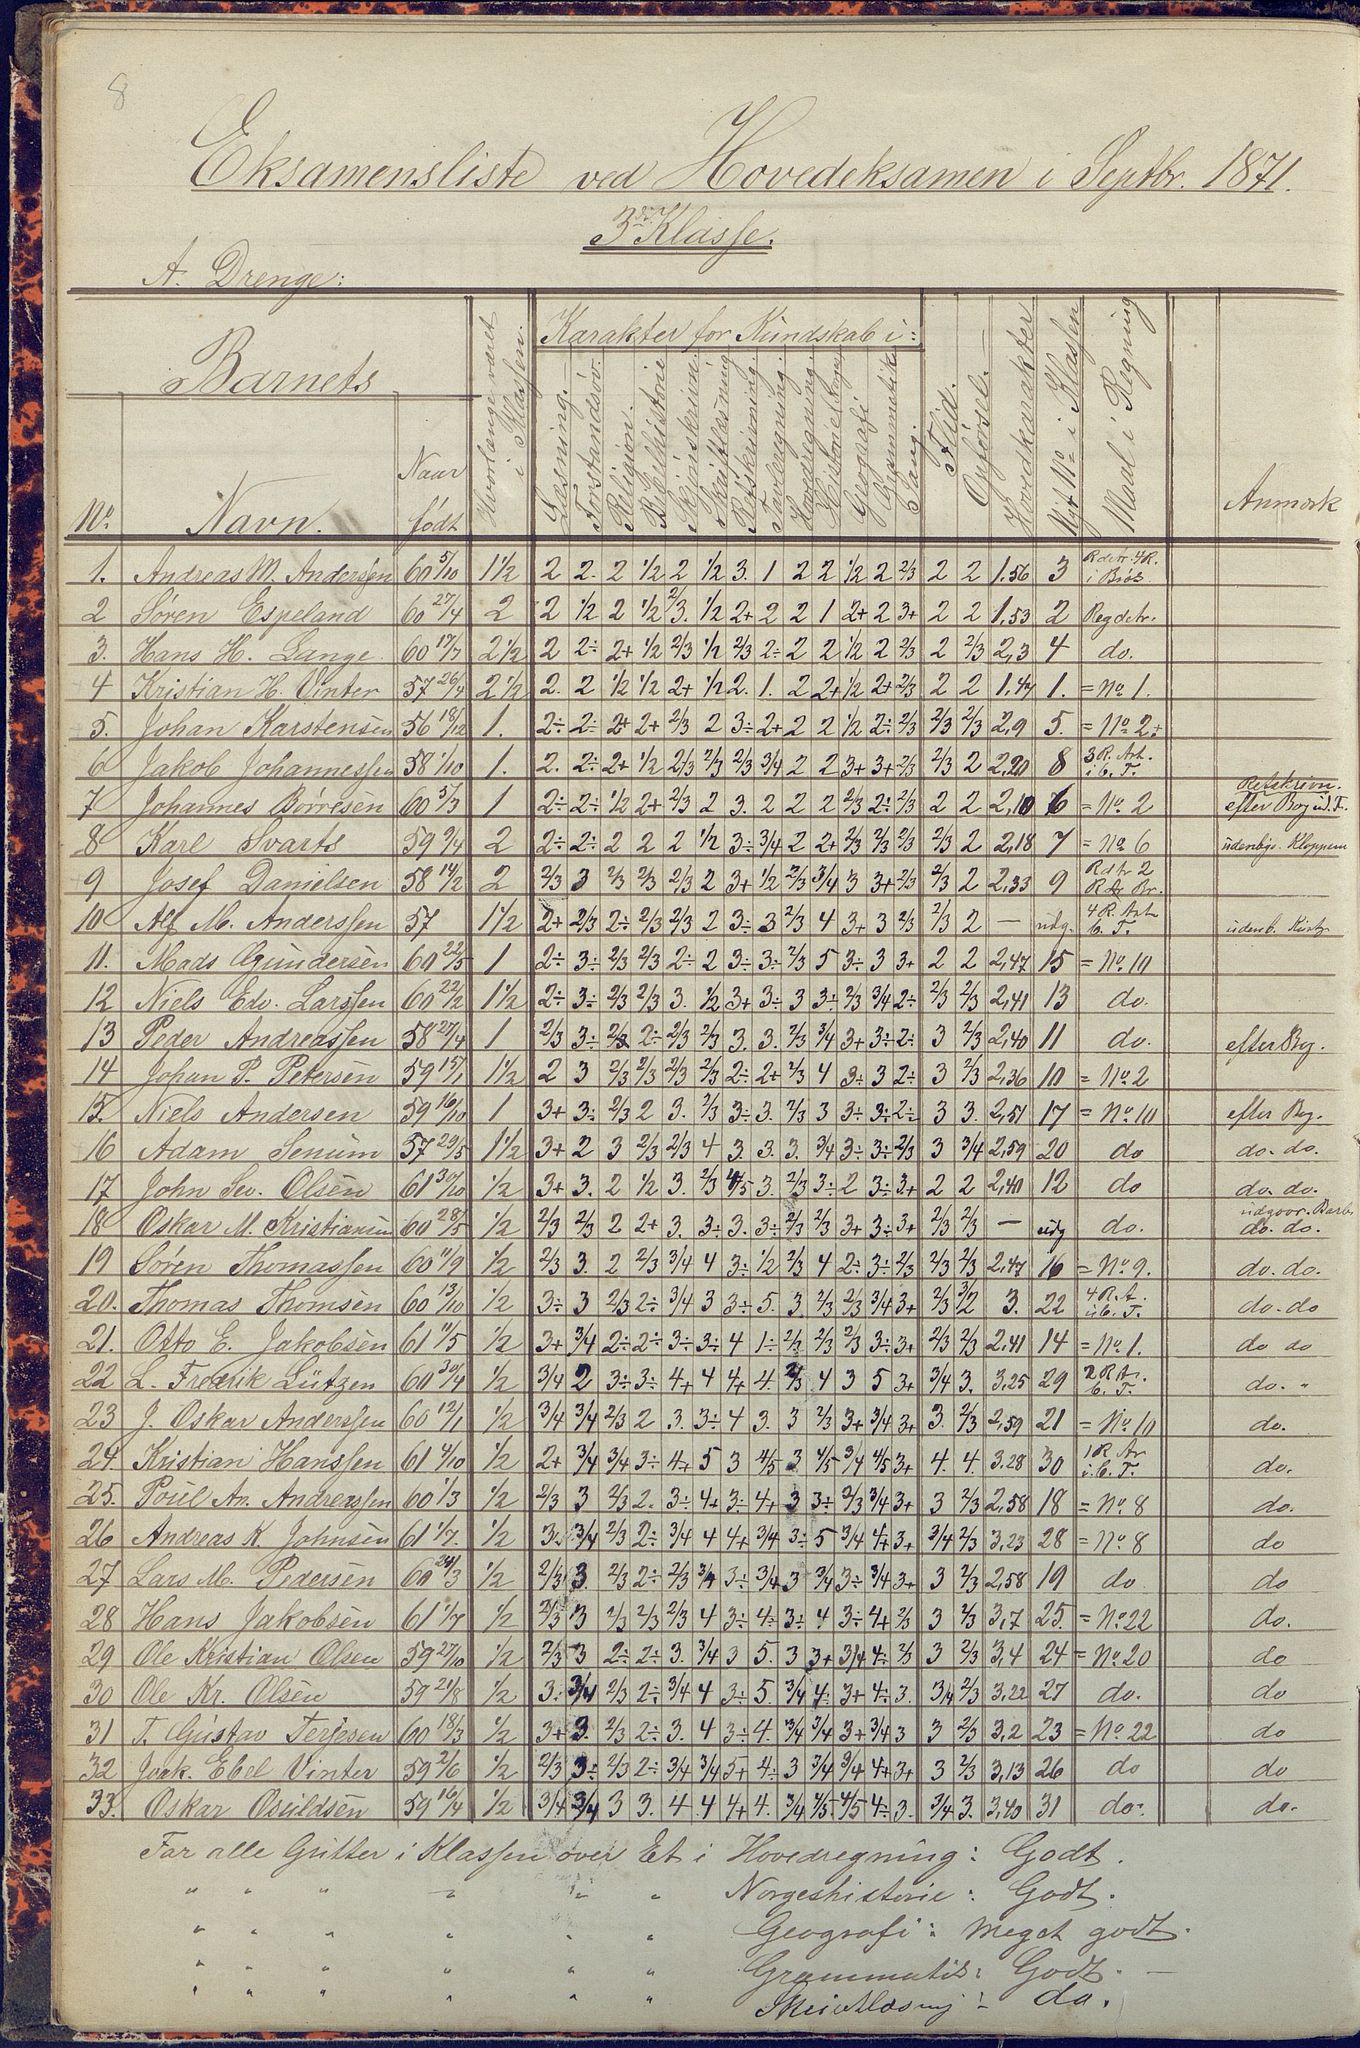 8
Eksamensliste ved Hovedeksamen i Septbr. 1871.
3die Klasse.
A. Drenge:
Barnets
No. Navn. Naar født Hvorlænge været i Klassen. Karakter for Kundskab i: Læsning. Forstandsöv. Religion. Bibelhistorie Skjönskrivn. Skriftlæsning Retskrivning Tavleregning. Hovedregning. Historie Geografi Grammatik Sang. Flid. Opførsel. Hovedkarakter Nyt No. i Klassen Maal i Regning Anmærk
1. Andreas M. Andersen 60 5/10 1 1/2 2 2. 2 1/2 2 1/2 3. 1 2 2 1/2 2 2/3 2 2 1.56 3
2 Søren Espeland 60 27/4 2 2 1/2 2 1/2 2/3. 1/2 2+ 2 2 1 2+ 2 3+ 2 2 1.53 2 Regdetr.
3. Hans H. Lange 60 17/7 2 1/2 2 2÷ 2+ 1/2 2/3 1/2 2/3 2÷ 2 2 1/2 2 2/3 2 2/3 2,3 4 do.
4 Kristian H. Vinter 57 26/4 2 1/2 2. 2 1/2 1/2 2+ 1/2 2. 1. 2 2+ 1/2 2+ 2/3 2 2 1.47 1. = No 1.
5. Johan Karstensen 56 18/12 1. 2÷ 2÷ 2+ 2+ 2/3 2 3÷ 2+ 2 2 1/2 2÷ 2/3 2/3 2/3 2,9 5. = No 2+
6 Jakob Johannessen 58 1/10 1. 2. 2÷ 2+ 1/2 2/3 2/3 2/3 3/4 2 2 3+ 3+ 2/3 2/3 2 2,20 8 3 R. Art. i b. T.
7 Johannes Börresen 60 5/3 1 2÷ 2÷ 1/2 2+ 2/3 2 3. 2 2 2 2/3 2÷ 2/3 2 2 2,10 6 = No 2 Retskrivn. efter Bog
8 Karl Svarts 59 9/4 2 2÷ 2÷ 2 2 2 1/2 3÷ 3/4 2 2+ 2/3 2/3 2/3 2/3 2 2,18 7 = No 6 udenbys. Kloppene
9 Josef Danielsen 58 14/2 2 2/3 3 2/3 2/3 2/3 2 3+ 1/2 2/3 3/4 3 3+ 2/3 2/3 2 2,33 9
10 Alf M. Anderssen 57 1 1/2 2+ 2/3 2÷ 2/3 2/3 2 3÷ 3 2/3 4 3+ 3 2/3 2/3 2 — udg. 4 R. Art b. T. udenb.
11. Mads Gundersen 60 22/5 1 2÷ 3÷ 2/3 2/3 2÷ 2 3÷ 3÷ 2/3 5 3÷ 3 3+ 2 2 2,47 15 = No 10
12 Niels Edv. Larssen 60 22/2 1 1/2 2÷ 3÷ 2/3 2/3 3. 1/2 3+ 3÷ 3 3÷ 2/3 3/4 2÷ 2/3 2/3 2,41 13 do.
13 Peder Andreassen 58 27/4 1 2/3 3÷ 2/3 2÷ 2/3 2/3 3. 3. 2/3 3/4 3+ 3÷ 2÷ 3 2/3 2,40 11 do. efter Bog.
14 Johan P. Petersen 59 15/1 1 1/2 2 3 2/3 2/3 2/3 2/3 2÷ 2+ 2/3 4 3÷ 3 2÷ 3 2/3 2,36 10 = No 2
15. Niels Andersen 59 16/10 1 3+ 3÷ 2/3 2 3. 2/3 3÷ 3. 2/3 3 3÷ 3÷ 2÷ 3 3. 2,51 17 = No. 10 efter Bog.
16 Adam Senum 57 29/5 1 1/2 3+ 2 3 2/3 2/3 4 3. 3. 3. 3/4 3÷ 3÷ 2/3 3 3/4 2,59 20 do do. do.
17 John Sev. Olsen 61 30/10 1/2 3+ 3. 2 1/2 3. 2/3 4/5 3. 2/3 3÷ 2 3÷ 3+ 2 2 2,40 12 do do. do.
18 Oskar M. Kristiansen 60 28/5 1/2 2/3 2/3 2 2+ 3. 3÷ 3. 3÷ 2/3 2/3 3+ 3÷ 3+ 2/3 2/3 — udg do. do. do.
19 Søren Thomassen 60 11/9 1/2 2/3 3. 2 2/3 3/4 4 3÷ 1/2 2/3 4 2÷ 3÷ 2/3 2/3 2/3 2,47 16 = No. 9. do. do.
20. Thomas Thomsen 60 13/10 1/2 3÷ 3 2/3 2÷ 3/4 3 3÷ 5. 3 2/3 2/3 3/4 3+ 2/3 3/2 3. 22 4 R. A. i b. T. do. do
21. Otto E. Jakobsen 61 11/5 1/2 3+ 3/4 2÷ 2÷ 3÷ 3÷ 4 1÷ 2/3 2/3 2/3 3÷ 3+ 2/3 2/3 2,41 14 = No 1. do do
22 L. Fredrik Lützen 60 30/4 1/2 3/4 2 3÷ 3÷ 4+ 4 4+ 4. 2/3 4 3 5 3+ 3/4 3. 3,25 29 2 R Ar. b. T. do. "
23 J. Oskar Anderssen 60 12/1 1/2 3/4 3/4 2/3 2 3. 3÷ 4 3. 3 2/3 3+ 3/4 3+ 3. 2/3 2,59 21 = No 10 do.
24 Kristian Hanssen 61 4/10 1/2 2+ 3/4 3/4 3÷ 4+ 5 3 4/5 3 4/5 3/4 4/5 3+ 4. 4. 3.28 30 1 R. Ar i. b. T. do.
25. Poul An. Andreassen 60 1/3 1/2 2/3 3 2/3 2. 3÷ 4+ 3÷ 4+ 3 3÷ 2/3 3/4 3+ 3 2/3 2,58 18 = No. 8 do.
26 Andreas K. Johnsen 61 1/7. 1/2 3. 3/4 2/3 2÷ 3/4 4 4+ 3/4 3÷ 5 3/4 4+ 3+ 3/4 2/3 3,23 28 = No 8 do
27 Lars M. Pedersen 60 24/3 1/2 2/3 3. 2/3 2÷ 2/3 3/4 3÷ 3/4 3 3/4 3÷ 3/4 3+ 3 2/3 2,58 19 do do
28 Hans Jakobsen 61 1/7 1/2 2/3 3 2/3 2/3 2/3 4 3÷ 4÷ 3÷ 4 3÷ 4+ 2/3 3 2/3 3,7 25. = No 22 do.
29 Ole Kristian Olsen 59 27/10 1/2 2/3 3 2÷ 2÷ 3. 3/4 3 5. 3 3+ 3/4 4÷ 2/3 3 2/3 3,4 24 = No 20 do
30 Ole Kr. Olsen 59 21/8 1/2 3÷ 3/4 2/3 2÷ 3/4 4 3÷ 5. 3/4 4÷ 3+ 4÷ 3. 3/4 2/3 3,22 27 do. do
31 T. Gustav Terjesen 60 18/3 1/2 3+ 3. 2/3 2÷ 3. 4 3÷ 4. 3/4 3/4 3+ 3/4 3 3 2/3 3,2 23 = No 22 do
32 Joak. Ebel Vinter 59 2/6 1/2 2/3 3÷ 2/3 2÷ 3/4 3/4 5+ 4÷ 3 3/4 3/4 4+ 3+ 3 2/3 3,13 26 do do
33. Oskar Osuldsen 59 16/4 1/2 3/4 3/4 3 3. 4 4 4+ 4. 3/4 4/5 4/5 4÷ 3. 3/4 3. 3,40 31 do. do.
For alle Gutter i Klassen over Et i Hovedregning: Godt.
" " " " " " Norgeshistorie: Godt.
" " " " " " Geografi: Meget godt.
" " " " " " Grammatik: Godt. —
" " " " " " do.